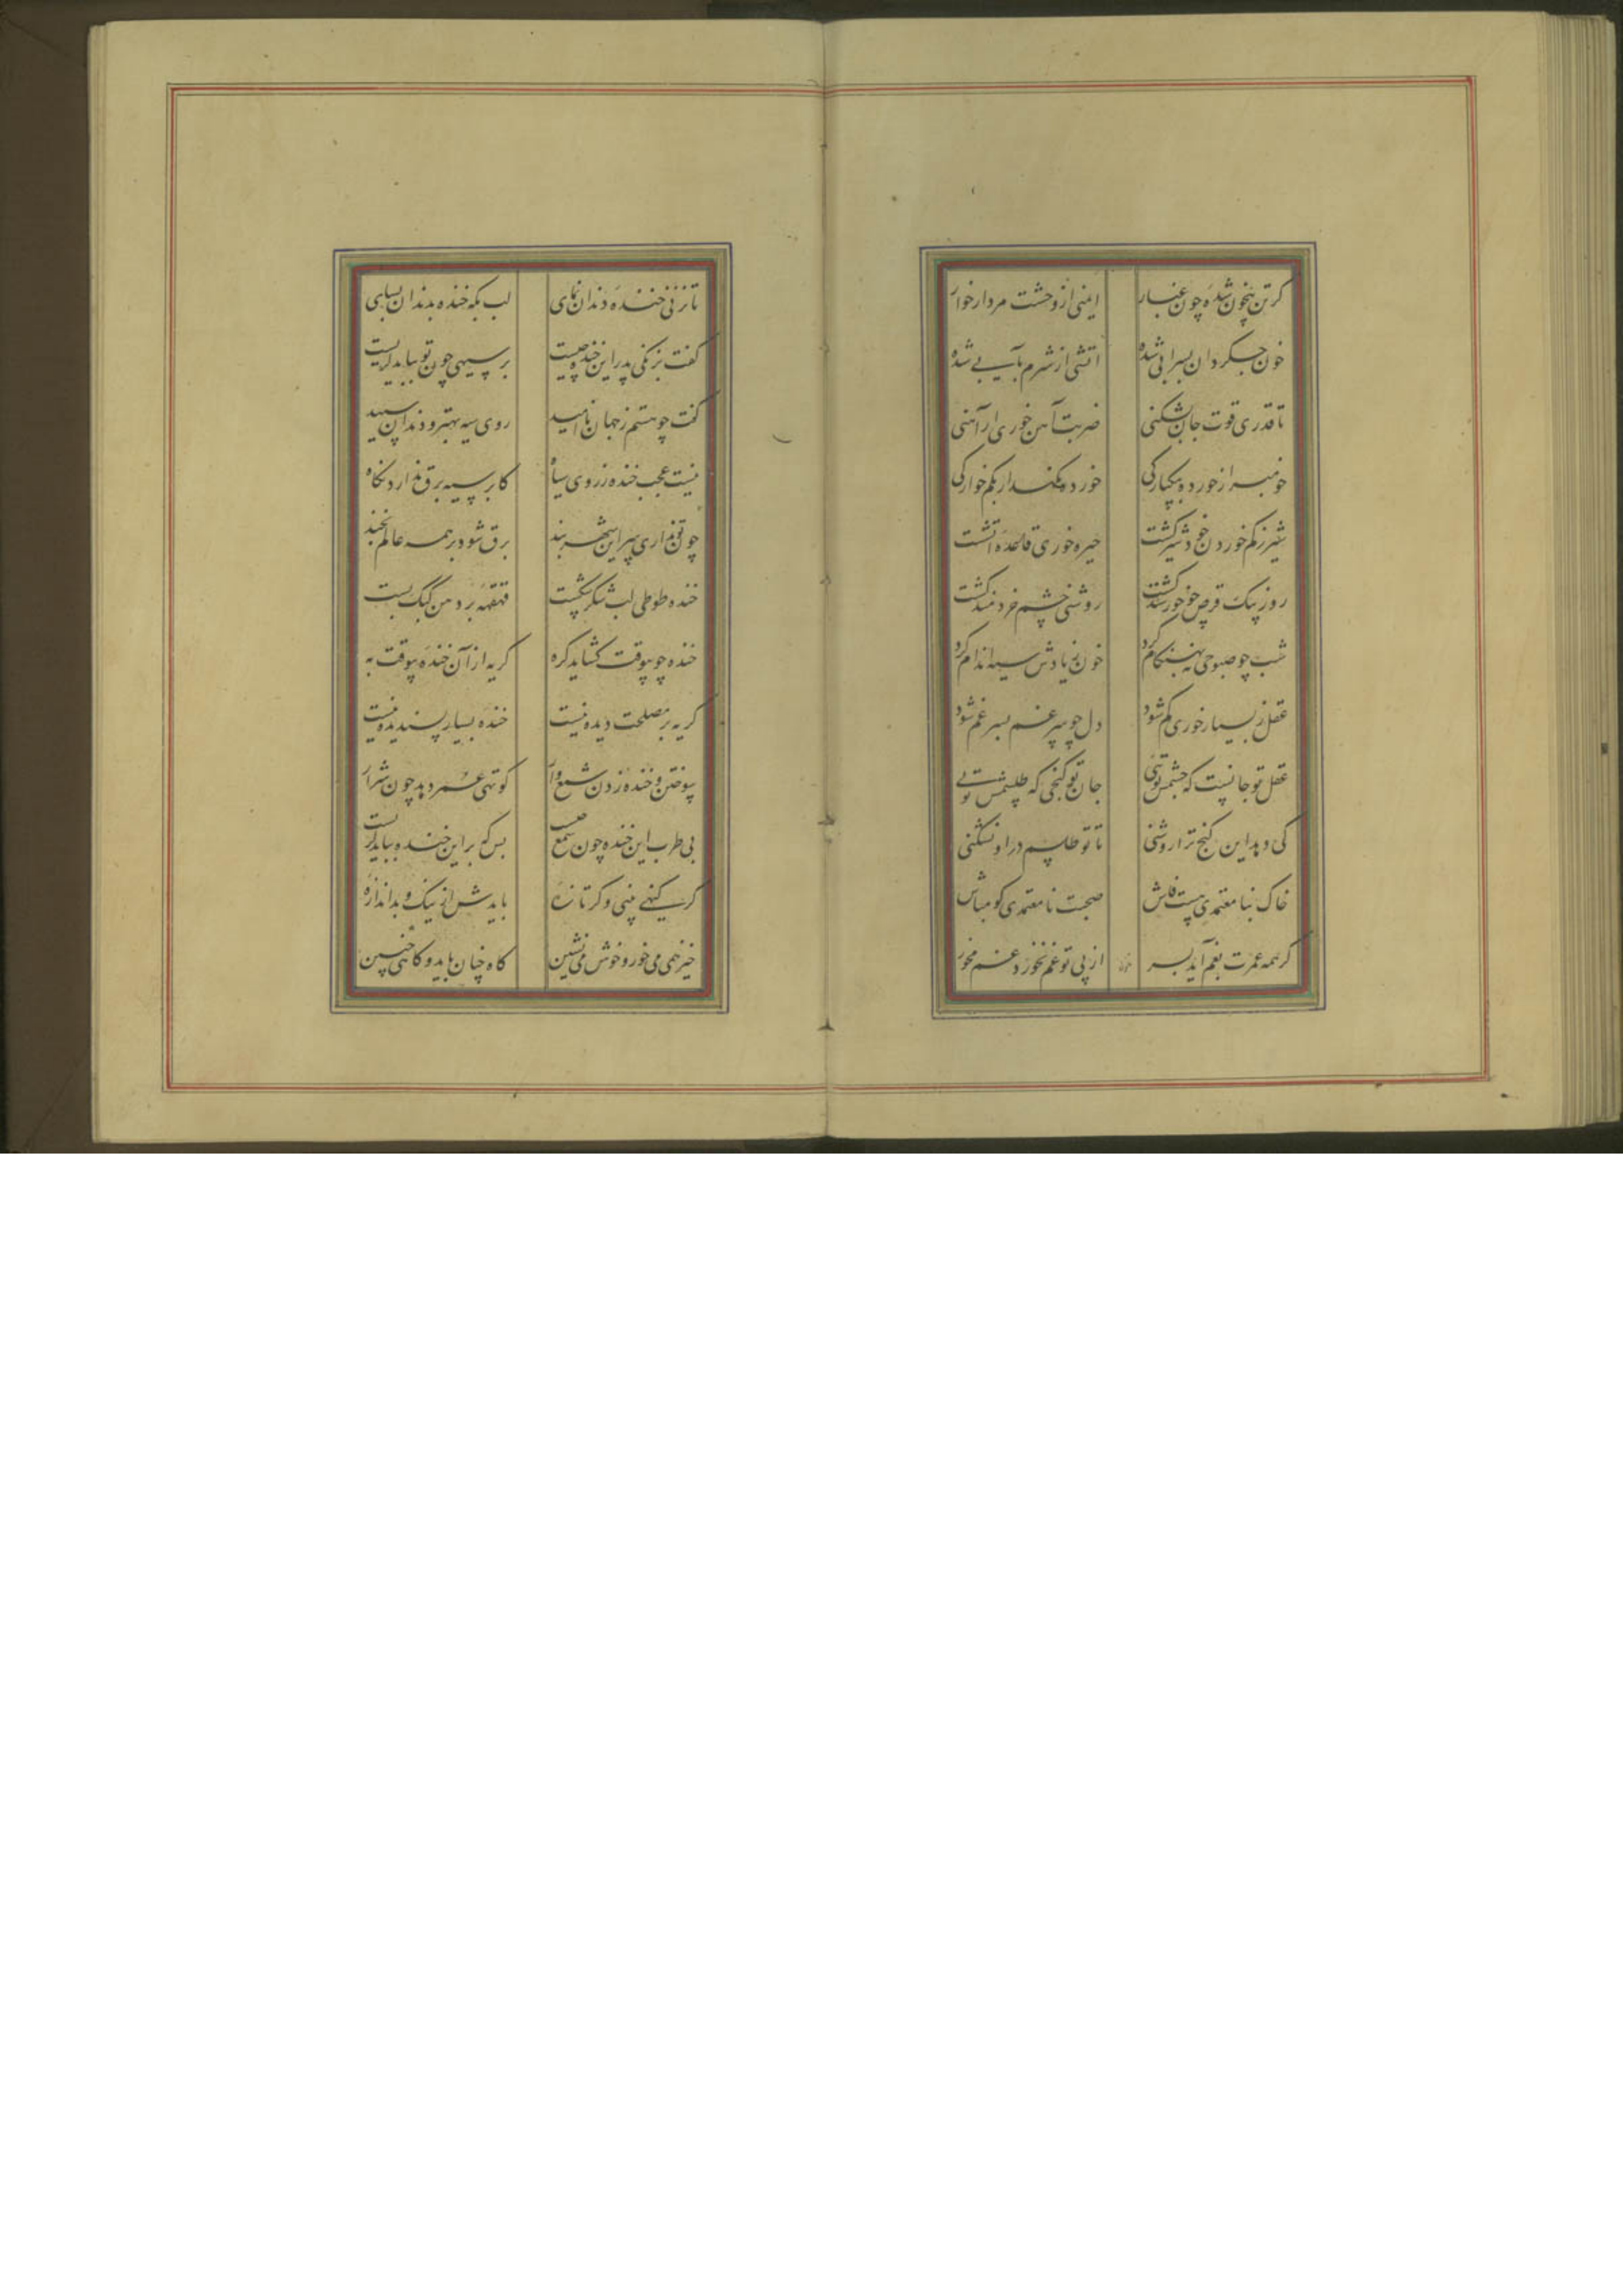 کر تن بیخون شده چون غبار ایمنی از وحشت مردار خوار
خون جکر دان بسرابی شده اتشی از شرم بآبی شده
تا قدری قوت جان بشکنی ضربت آهن خوری ار آهنی
خو مبر از خورده بیکبارکی خورده نکهدار بکم خوارکی
شیر ز کم خوردن خود شیر کشت خیره خوری قاعده اتشت
روز بیک قرص چو خورسند کشت روشنی چشم خردمند کشت
شب چو صبوحی نه بهنکام کرد خون زیادش سیه اندام کرد
عقل ز بسیار خوری کم شود دل چو سپر غم سپر غم شود
عقل تو جانیست که جسمش توئی جان تو کنجی که طلسمش توئی
کی دهد این کنج ترا روشنی تا تو طلسم در او نشکنی
خاک بنا معتمدی هست فاش صحبت نا معتمدی کو مباش
کر همه عمرت بغم آید بسر از پی تو غم نخورد غم مخور
تا نزنی خنده دندان نمای لب بکه خنده بدندان بسای
کفت بزنکی پدر این خنده چیست بر سیهی چون تو بباید کریست
کفت چو هستم ز جهان نا امید روی سیه بهتر و دندان سپید
نیست عجب خنده ز روی سیاه کابر سیه برق ندارد نکاه
چو تو نداری سر این شهر بند برق شو و بر همه عالم بخند
خنده طوطی لب شکر شکست قهقهه بر دهن کبک بست
خنده چو بیوقت کشاید کره کریه از آن خنده بیوقت به
کریه پر مصلحت دیده نیست خنده بسیار پسندیده نیست
سوختن و خنده زدن شمع وار کوتهی عمر دهد چون شرار
بی طرب این خنده چون شمع چیست بس که بر این خنده بباید کریست
کر کهنی بینی و کر تازه بایدش از نیک و بد اندازه
خیز همی می خور و خوش می نشین کاه چنان باید و کاهی چنین